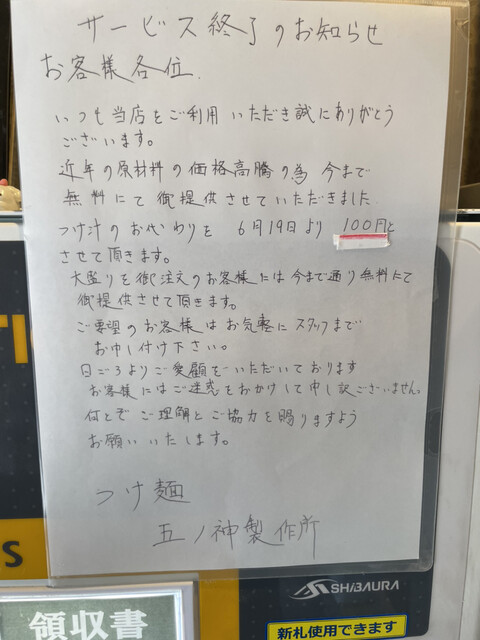 サービス終了のお知らせ
お客様各位.
いつも当店をご利用いただき誠にありがとう
ございます。
近年の原材料の価格高騰の為今まで
無料にて御提供させていただきました
つけ汁のおかわりを 6月19日より 100円と
させて頂きます。
大盛りを御注文のお客様には今まで通り無料にて
御提供させて頂きます。
ご要望のお客様はお気軽にスタッフまで
お申し付け下さい。
日ごろよりご愛顧をいただいております
お客様にはご迷惑をおかけして申し訳ございません。
何とぞご理解とご協力を賜りますよう
お願いいたします。
つけ麺
五ノ神製作所
SHIBAURA
領収書
新札使用できます